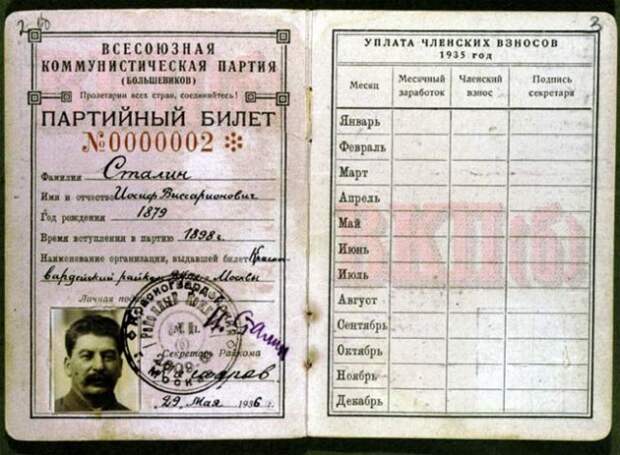 2
ВСЕСОЮЗНАЯ
КОММУНИСТИЧЕСКАЯ ПАРТИЯ
(БОЛЬШЕВИКОВ)
Пролетарии всех стран, соединяйтесь!
ПАРТИЙНЫЙ БИЛЕТ
№0000002
Фамилия Сталин
Имя и отчество Иосиф Виссарионович
Год рождения 1879
Время вступления в партию 1898 г.
Наименование организации, выдавшей билет Красно
гвардейский райком г. Москвы
Личная
Секретарь Райкома
29 мая 1936 г.
3
УПЛАТА ЧЛЕНСКИХ ВЗНОСОВ
1935 год
Месяц Месячный заработок Членский взнос Подпись секретаря
Январь
Февраль
Март
Апрель
Май
Июнь
Июль
Август
Сентябрь
Октябрь
Ноябрь
Декабрь
ВКП(б)